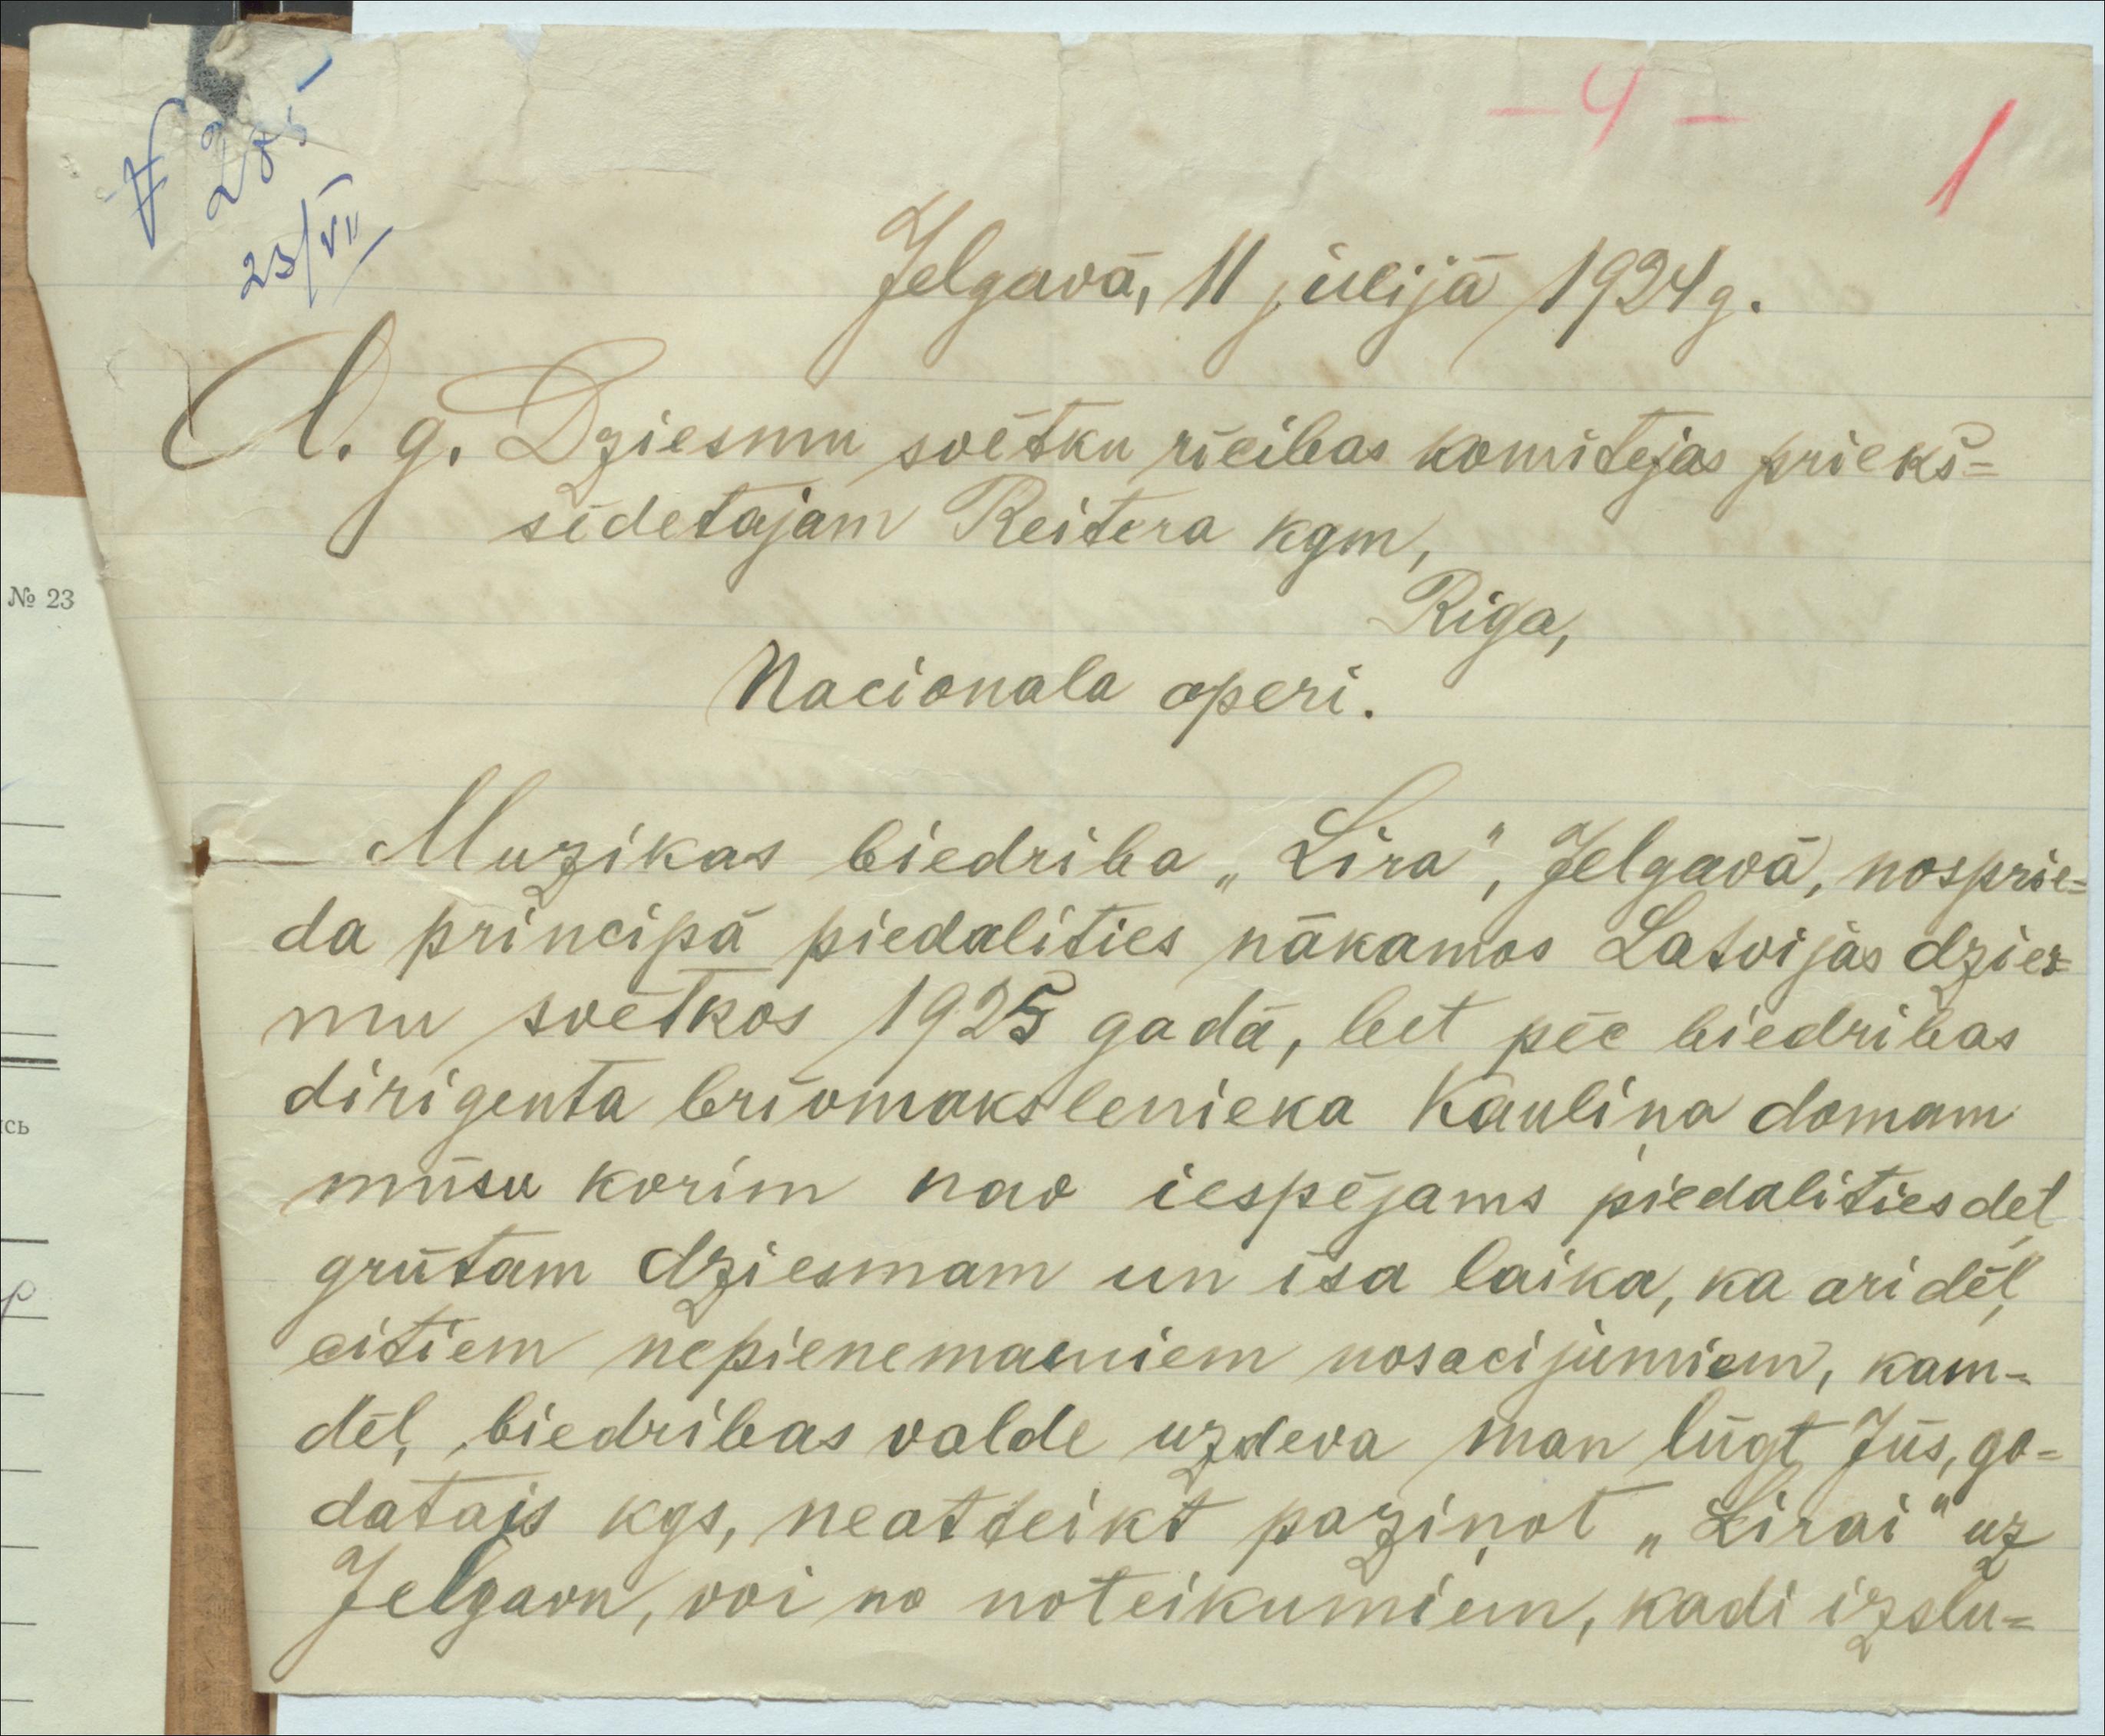 № 285
23/VII
– 4 –
1
Jelgavā, 11 jūlijā 1924 g.
A. g. Dziesmu svētku rīcibas komitejas priekš=
sēdetājam Reitera kgm,
Riga,
Nacionala operi.
Muzikas biedriba „Lira", Jelgavā, nosprie=
da principā piedalities nākamos Latvijas dzies=
mu svētkos 1925 gadā, bet pēc biedribas
dirigenta brīvmakslenieka Kauliņa domam
mūsu korim nav iespējams piedalities dēļ
grūtam dziesmam un īsa laika, ka ari dēļ
citiem nepieņemamiem nosacijumiem, kam-
dēļ, biedribas valde uzdeva man lūgt Jūs, go=
datais kgs, neatteikt paziņot „Lirai" uz
Jelgavu, vai no noteikumiem, kadi izslu=
№ 23
сь